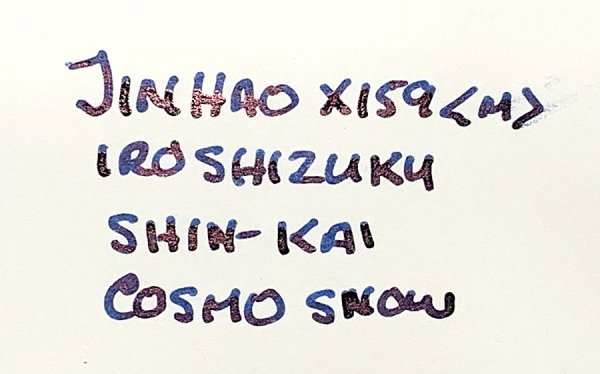 JINHAO X159 <M>
IROSHIZUKU
SHIN-KAI
COSMO SNOW